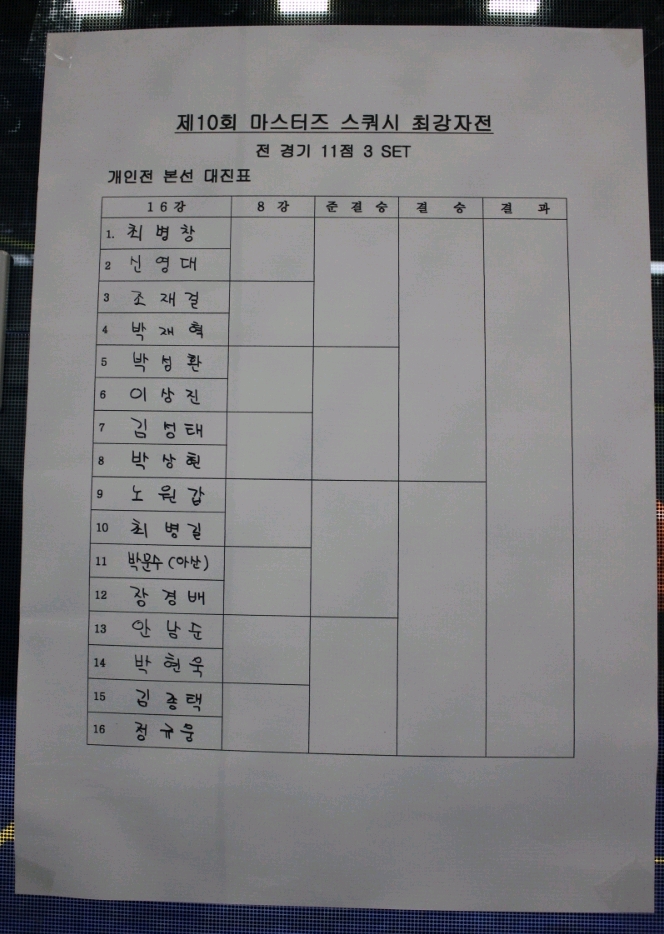 제10회 마스터즈 스쿼시 최강자전
전 경기 11점 3 SET
개인전 본선 대진표
16강 8강 준결승 결승 결과
1. 최병창
2 신영대
3 조재걸
4 박재혁
5 박성환
6 이상진
7 김성태
8 박상현
9 노원갑
10 최병길
11 박문수(아산)
12 장경배
13 안남순
14 박현욱
15 김종택
16 정규웅